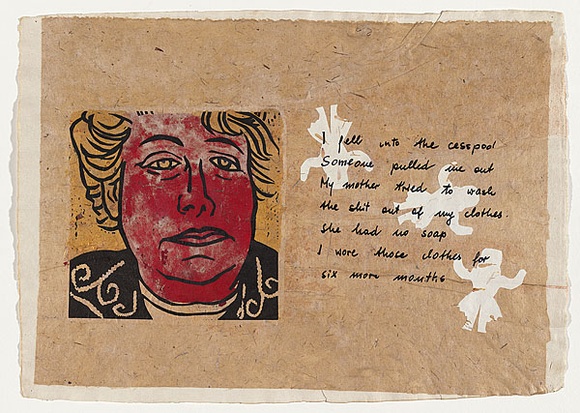 I fell into the cesspool
Someone pulled me out
My mother tried to wash
the shit out of my clothes.
She had no soap
I wore those clothes for
six more months